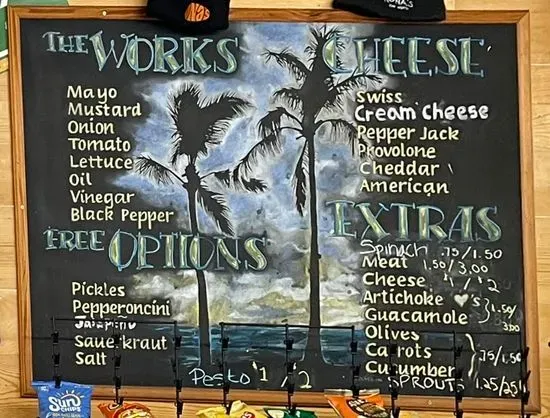 NAS
NONA'S
THE WORKS
Mayo
Mustard
Onion
Tomato
Lettuce
Oil
Vinegar
Black Pepper
FREE OPTIONS
Pickles
Pepperoncini
Jalapeño
Sauerkraut
Salt
CHEESE
Swiss
Cream Cheese
Pepper Jack
Provolone
Cheddar
American
EXTRAS
Spinach .75/1.50
Meat 1.50/3.00
Cheese 1/2
Artichoke ♥'s
Guacamole
1.50/
3.00
Olives
Carrots
Cucumber
.75/1.50
SPROUTS 1.25/2.51
Pesto 1/2
Sun
CHIPS